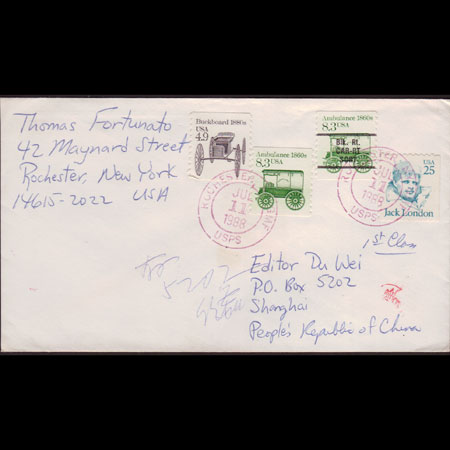 Thomas Fortunato
42 Maynard Street
Rochester, New York
14615-2022 USA
Buckboard 1880s
USA
4.9
Ambulance 1860s
8.3 USA
Ambulance 1860s
8.3 USA
Blk. Rt.
CAR-RT
SORT
USA
25
Jack London
ROCHESTER
JUL
11
1988
USPS
ROCHESTER
JUL
11
1988
USPS
1st Class
5202
Editor Du Wei
P.O. Box 5202
Shanghai
People's Republic of China